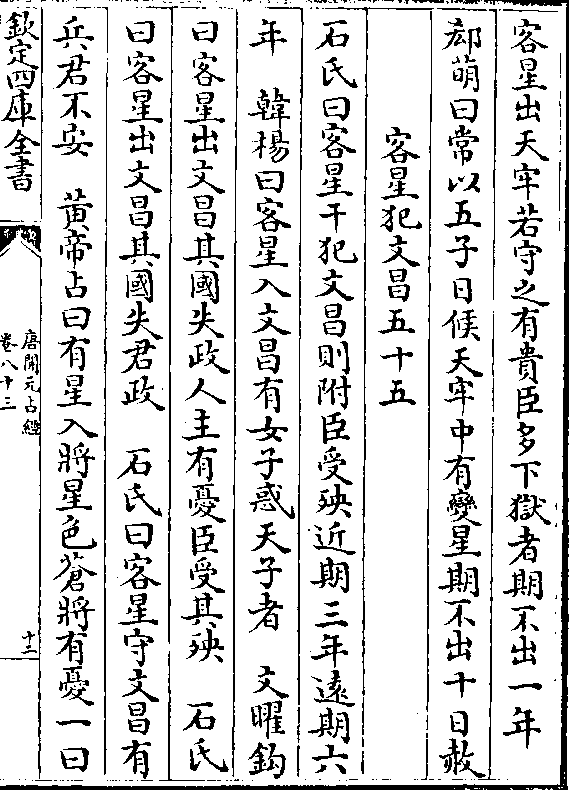 客星出天牢若守之有貴臣多下獄者期不出一年
郄萌曰常以五子日候天牢中有變星期不出十日赦
客星犯文昌五十五
石氏曰客星干犯文昌則附臣受殃近期三年遠期六
年　韓楊曰客星入文昌有女子惑天子者　文曜鈎
曰客星出文昌其國失政人主有憂臣受其殃　石氏
曰客星出文昌其國失君政　石氏曰客星守文昌有
兵君不安　黃帝占曰有星入將星色蒼將有憂一曰
欽定四庫全書
唐開元占經
卷八十三
十二